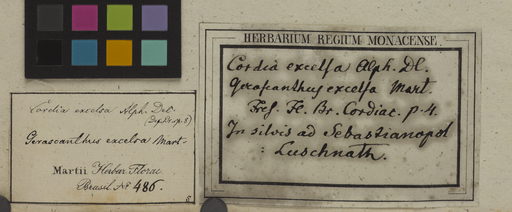 Cordia excelsa Alph. DeC.
Gerascanthus excelsa Mart.
Martii Herbar. Florae
Brasil. No 486.
HERBARIUM REGIUM MONACENSE.
Cordia excelsa Alph. DC.
Gerascanthus excelsa Mart.
Fr. Cordiac. p. 4.
In silvis ad Sebastianopol
: Luschnath.